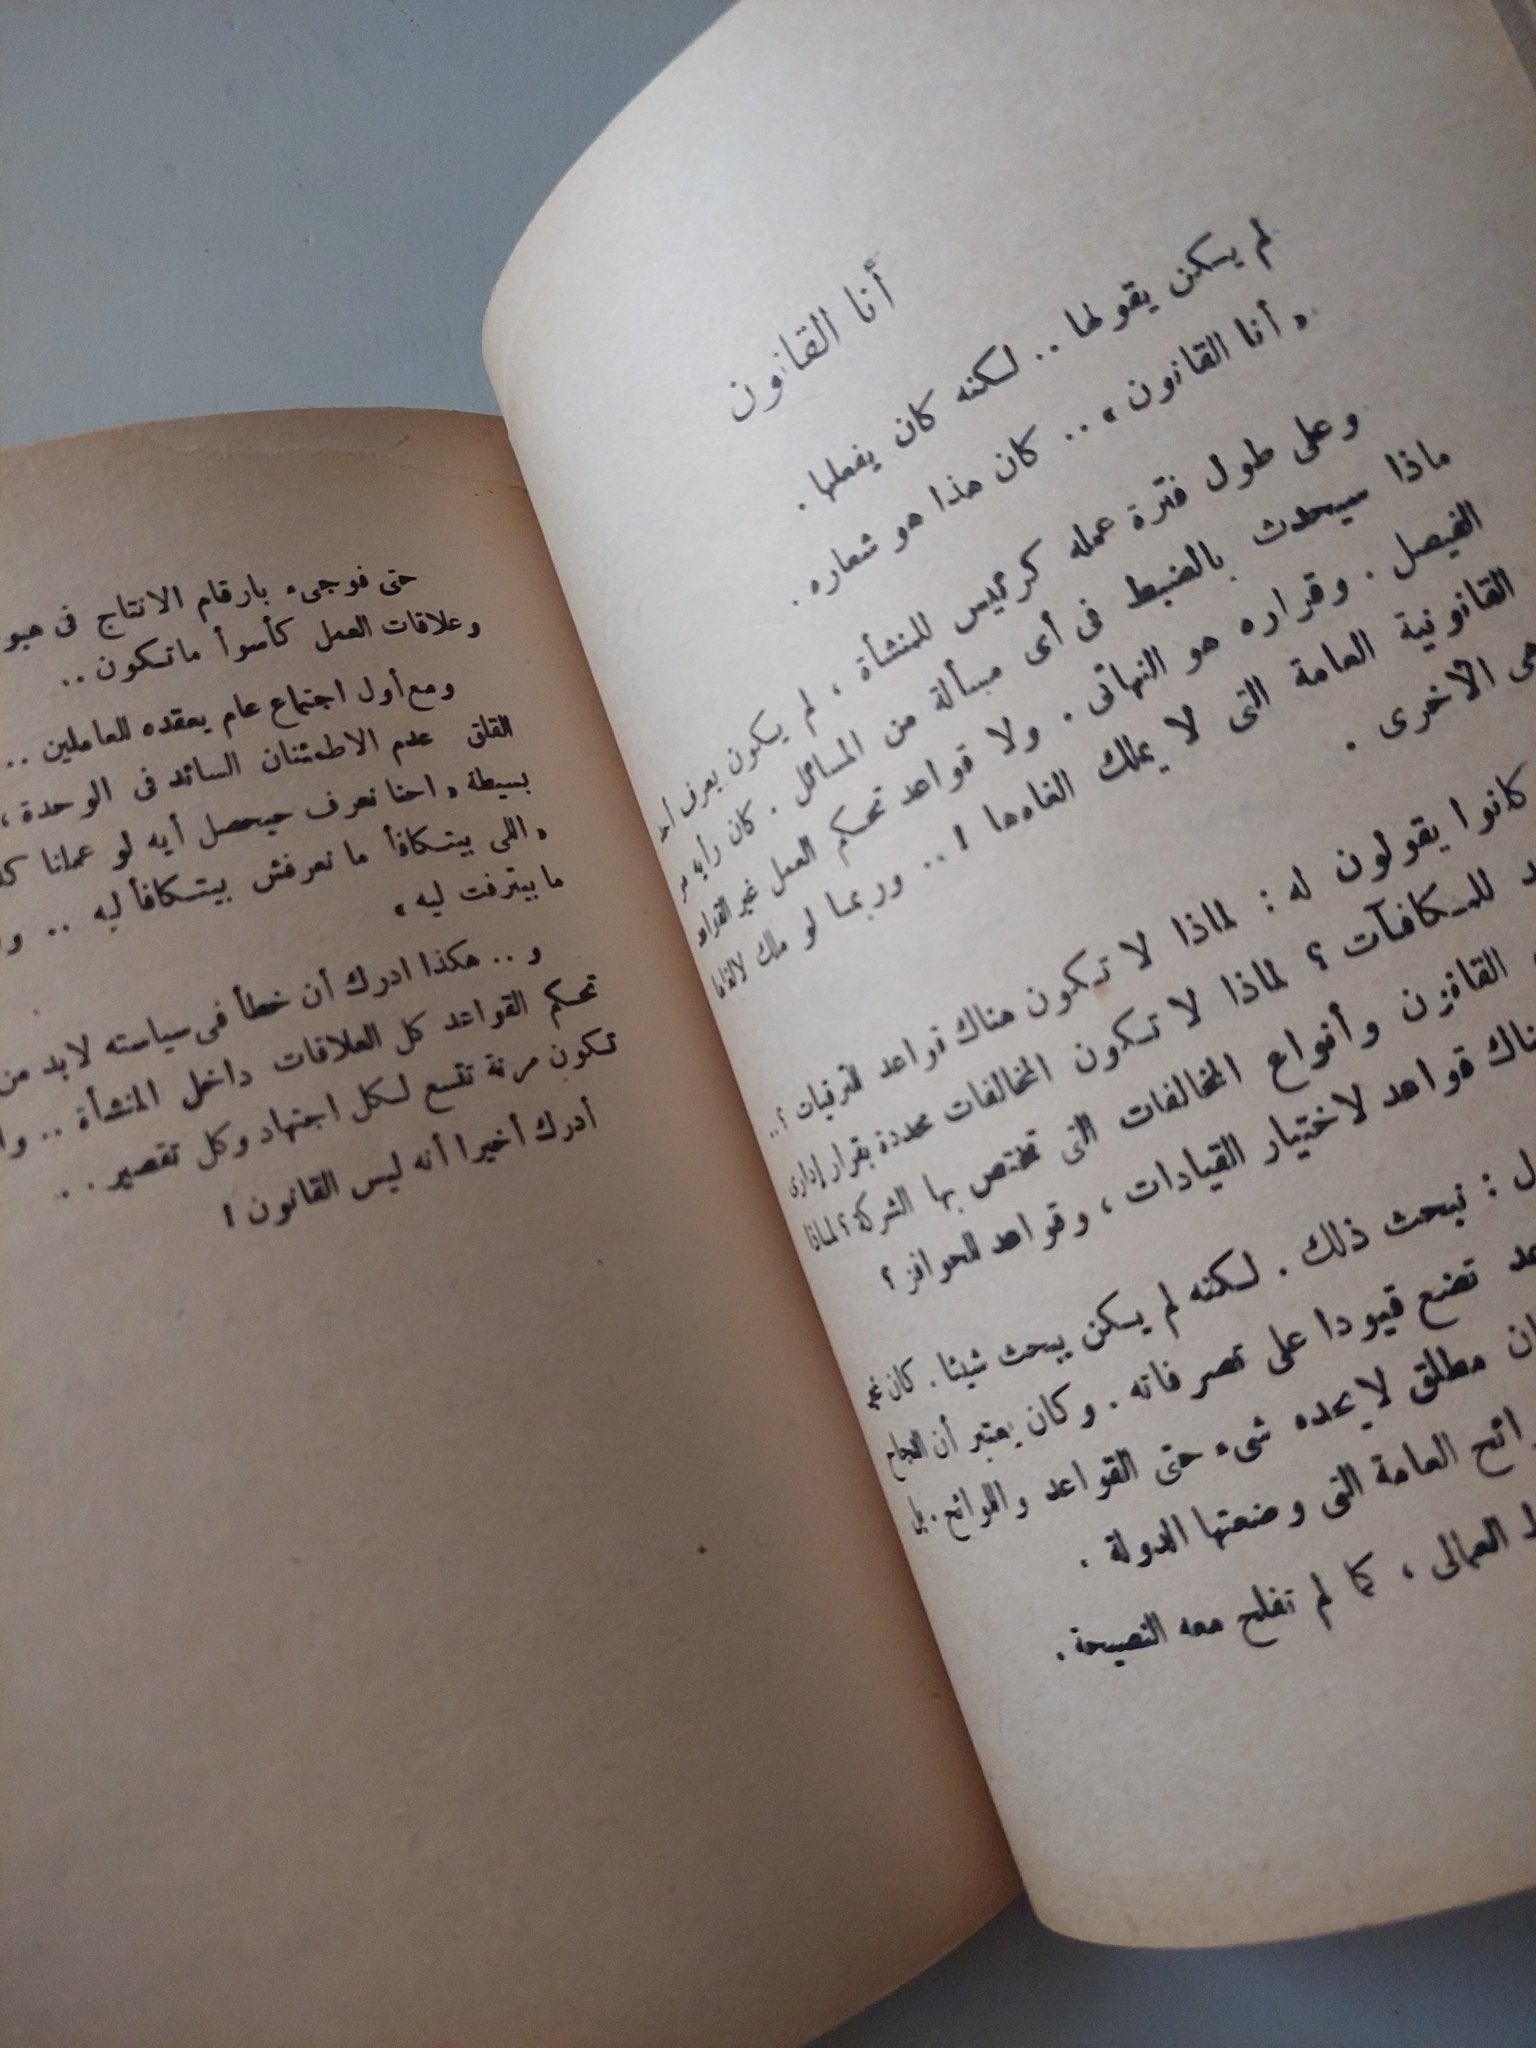 أنا القانون
لم يكن يقولها .. لكنه كان يفعلها .
« أنا القانون » .. كان هذا هو شعاره .
وعلى طول فترة عمله كرئيس للمنشأة ، لم يكون يعرف أحد
ماذا سيحدث بالضبط فى أى مسألة من المسائل . كان رأيه هو
الفيصل . وقراره هو النهائى . ولا قواعد تحكم العمل غير القواعد
القانونية العامة التى لا يملك الغاءها ! .. وربما لو ملك لالغاها
هى الأخرى .
كانوا يقولون له : لماذا لا تكون هناك قواعد للترقيات ؟ ..
للمكافآت ؟ لماذا لا تكون المخالفات محددة بقرار إدارى
القانون وأنواع المخالفات التى تختص بها الشركة ؟ لماذا
قواعد لاختيار القيادات ، وقواعد للحوافز ؟
: نبحث ذلك . لكنه لم يكن يبحث شيئا . كان
تضع قيودا على تصرفاته . وكان يعتبر أن النجاح
مطلق لا يحده شىء حتى القواعد واللوائح . بل
العامة التى وضعتها الدولة .
العمالى ، كما لم تفلح معه النصيحة .
حتى فوجىء بارقام الانتاج فى
وعلاقات العمل كأسوأ ماتكون ..
ومع أول اجتماع عام يعقده للعاملين ..
القلق عدم الاطمئنان السائد فى الوحدة ،
بسيطة « احنا نعرف حيحصل أيه لو عملنا
« اللى بيتكافأ ما نعرفش بيتكافأ ليه ..
ما بيترفت ليه »
و .. هكذا ادرك أن خطأ فى سياسته لابد من
تحكم القواعد كل العلاقات داخل المنشأة ..
تكون مرنة تتسع لكل اجتهاد وكل تقصير ..
أدرك أخيرا أنه ليس القانون !